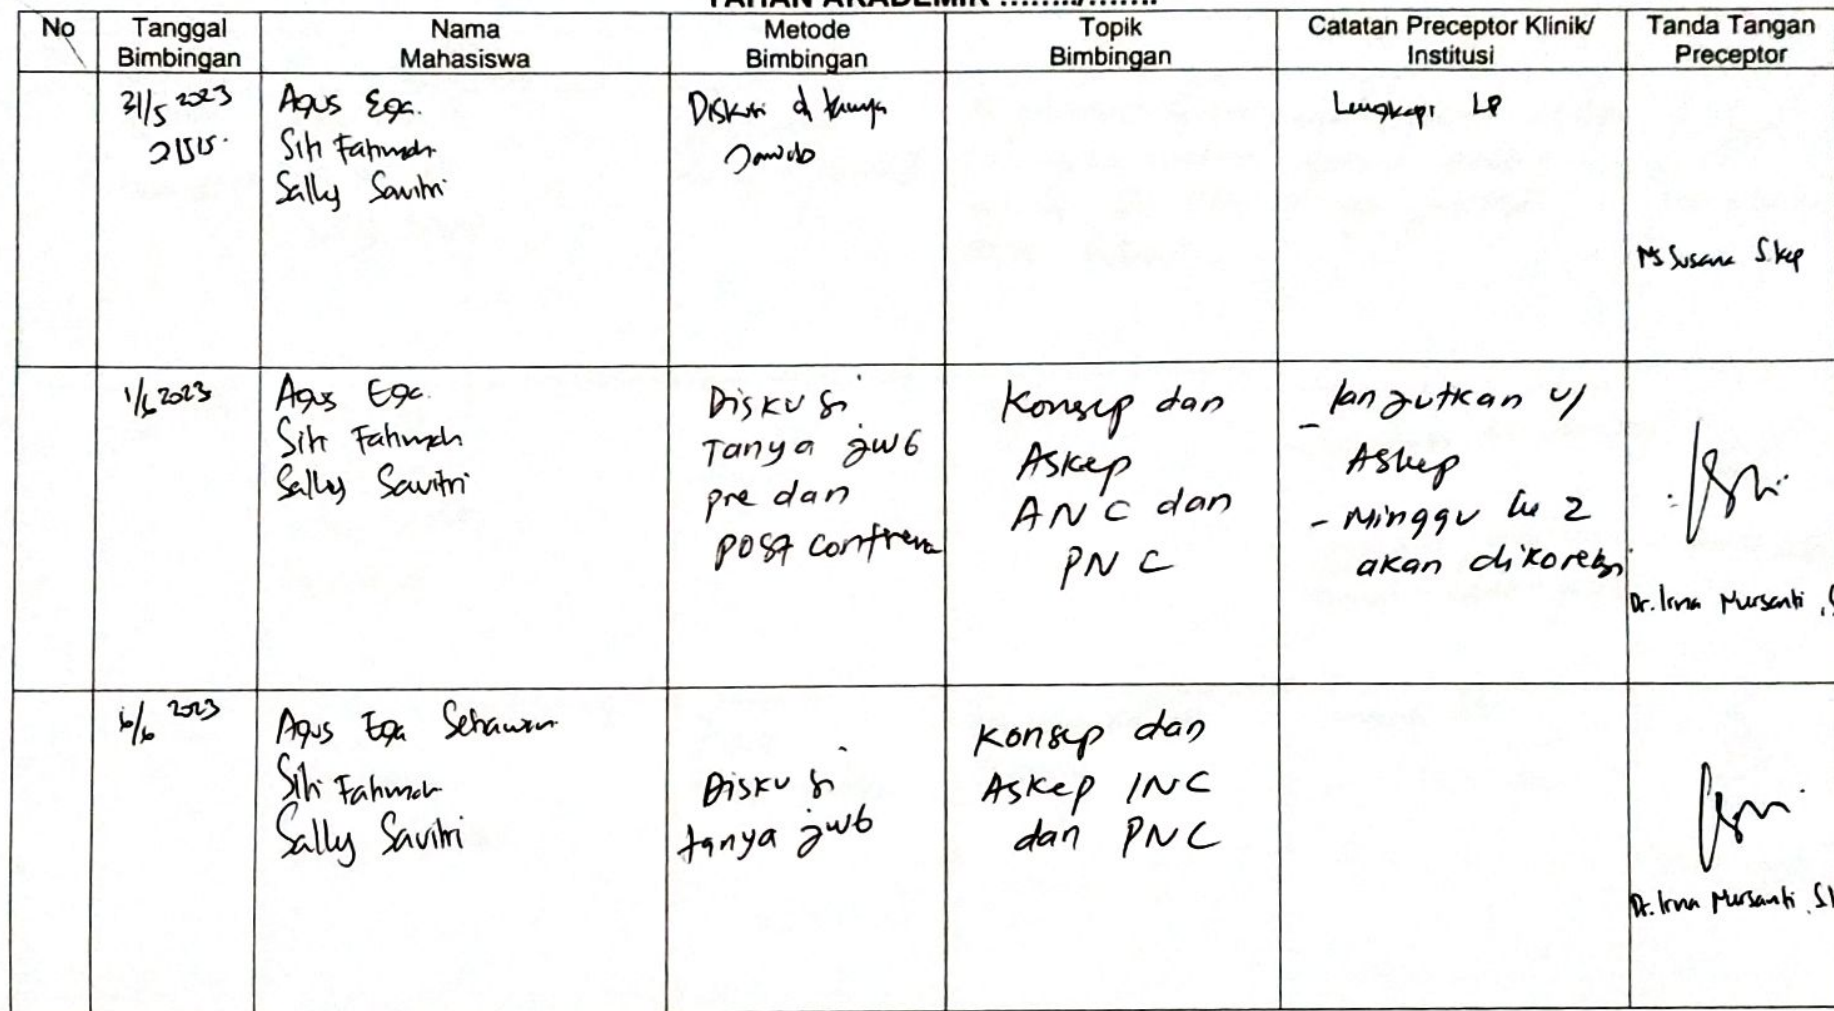 TAHAN AKADEMIK ......../.......
No
Tanggal
Bimbingan
Nama
Mahasiswa
Metode
Bimbingan
Topik
Bimbingan
Catatan Preceptor Klinik/
Institusi
Tanda Tangan
Preceptor
31/5 2023
Agus Ega.
Siti Fatimah
Sally Savitri
Diskusi &
Lengkapi LP
Ns Susana S.kep
1/6 2023
Agus Ega.
Siti Fatimah
Sally Savitri
Diskusi
Tanya jwb
pre dan
post
Konsep dan
Askep
ANC dan
PNC
- lanjutkan u/
Askep
- Minggu ke 2
akan dikoreksi
Dr. Irna Nursanti, S
6/6 2023
Agus Ega Setiawan
Siti Fatimah
Sally Savitri
Diskusi
tanya jwb
Konsep dan
Askep INC
dan PNC
Dr. Irna Nursanti, S